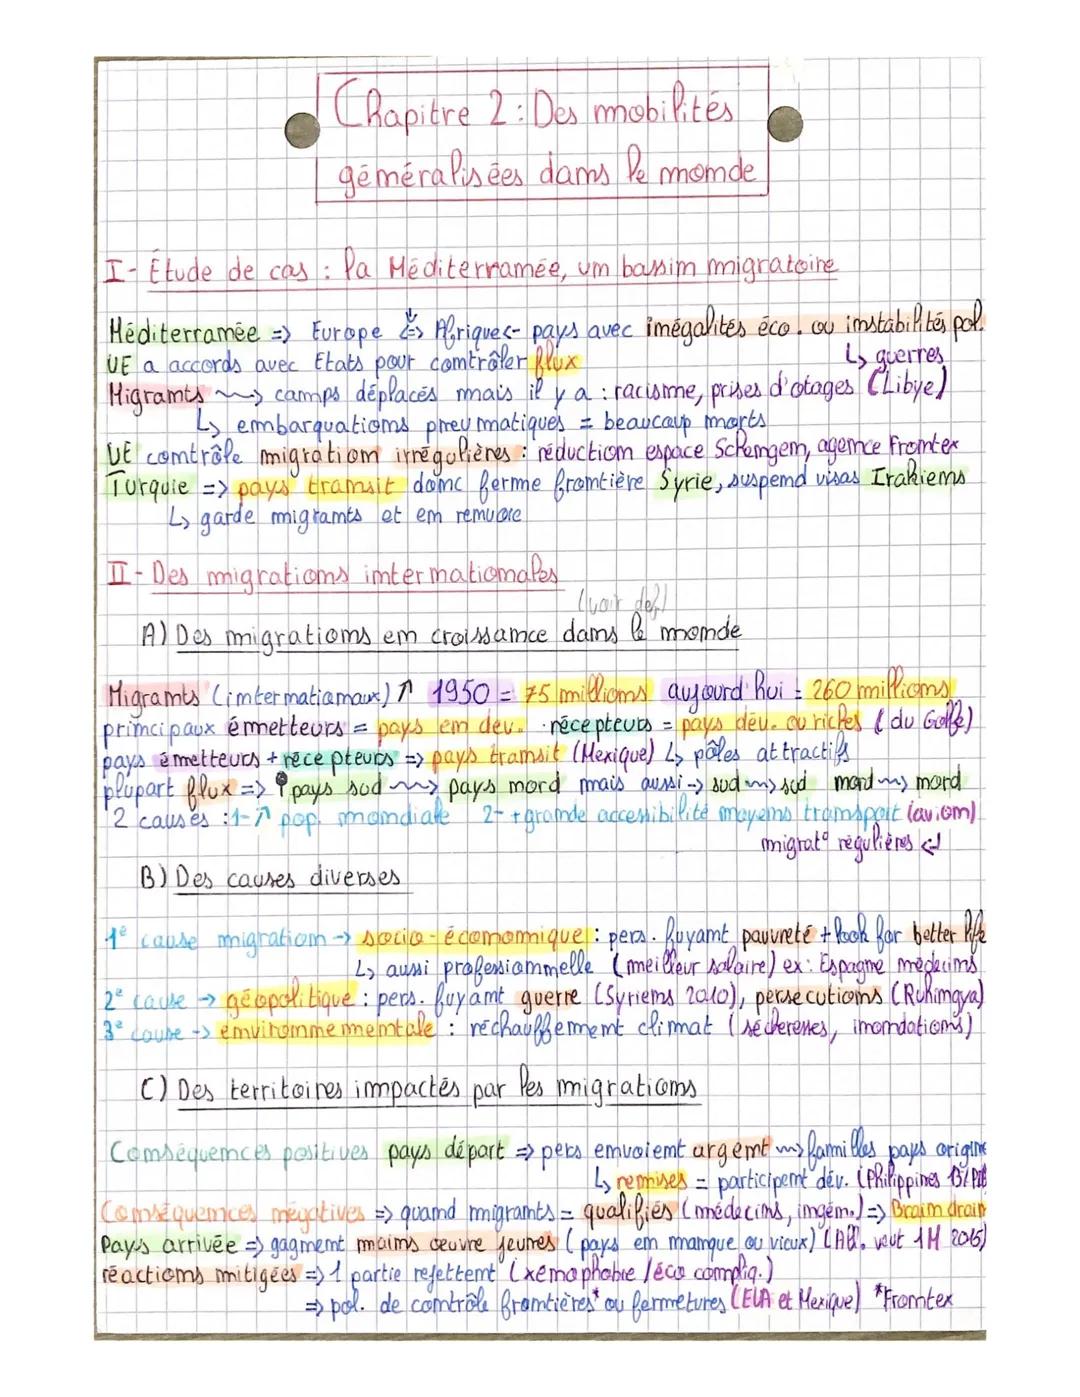 Chapitre 2 : Des mobilités
généralisées dans le monde
I - Étude de cas : la Méditerranée, un bassin migratoire
Méditerranée => Europe <=> Afrique <- pays avec inégalités éco. ou instabilités pol.
↳ guerres
UE a accords avec Etats pour contrôler flux
Migrants ~~> camps déplacés mais il y a : racisme, prises d'otages (Libye)
↳ embarquations pneumatiques = beaucoup morts
UE contrôle migration irrégulières : réduction espace Schengem, agence Frontex
Turquie => pays transit donc ferme frontière Syrie, suspend visas Irakiens
↳ garde migrants et en remvoie
II - Des migrations internationales
(voir def)
A) Des migrations en croissance dans le monde
Migrants (internationaux) ↑ 1950 = 75 millions aujourd'hui = 260 millions
principaux émmetteurs = pays en dev. récepteurs = pays dév. ou riches (du Golfe)
pays émetteurs + récepteurs => pays transit (Mexique) ↳ pôles attractifs
plupart flux => pays sud ~~> pays nord mais aussi -> sud ~~> sud nord ~~> nord
2 causes : 1- ↗ pop. mondiale 2- + grande accessibilité moyens transport (avion)
migrat° régulières <-
B) Des causes diverses
1e cause migration -> socio-économique : pers. fuyant pauvreté + look for better life
↳ aussi professionnelle (meilleur salaire) ex : Espagne médecins
2e cause -> géopolitique : pers. fuyant guerre (Syriens 2010), persecutions (Rohingya)
3e cause -> environnementale : réchauffement climat (sécheresses, inondations)
C) Des territoires impactés par les migrations
Conséquences positives pays départ => pers envoient argent ~~> familles pays origine
↳ remises = participent dév. (Philippines 13% PIB
Conséquences négatives => quand migrants = qualifiés (médecins, ingén.) => Brain drain
Pays arrivée => gagnent mains œuvre jeunes (pays en manque ou vieux) (All. veut 1M 2015)
réactions mitigées => 1 partie rejettent (xénophobie / éco compliq.)
=> pol. de contrôle frontières* ou fermetures (EUA et Mexique) *Frontex